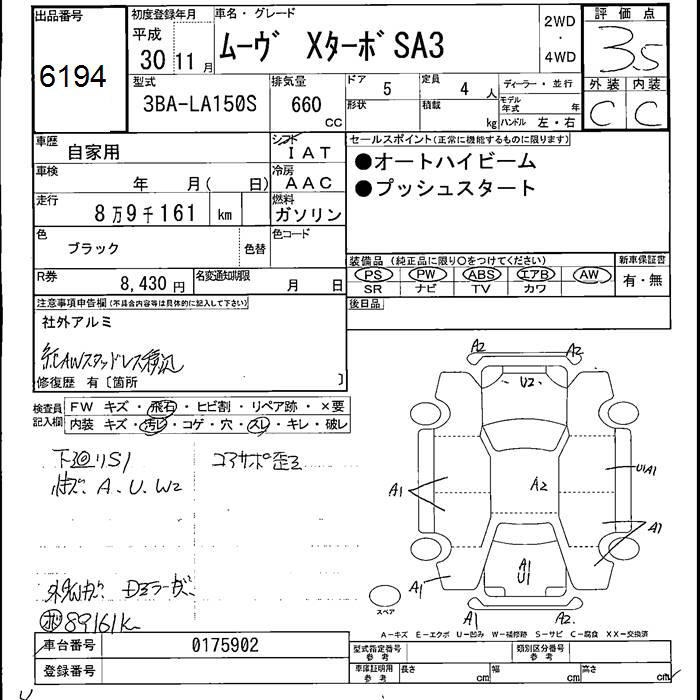 出品番号 初度登録年月 車名・グレード 2WD・4WD 評価点
6194 平成 30年11月 ムーヴ XターボSA3 3.5
型式 排気量 ドア 5 定員 4人 ディーラー・並行 外装 内装
3BA-LA150S 660cc 形状 積載 kg モデル年式 年 ハンドル 左・右 C C
車歴 自家用 シフト IAT セールスポイント(正常に機能するものに限ります)
車検 年 月( 日) 冷房 AAC ●オートハイビーム
走行 8万9千161 km 燃料 ガソリン ●プッシュスタート
色 ブラック 色替 色コード
装備品(純正品に限り○をつけてください) 新車保証書
R券 8,430円 名変通知期限 月 日 PS PW ABS エアB AW 有・無
SR ナビ TV カワ
注意事項申告欄(不具合内容等は具体的に記入して下さい) 後日品
社外アルミ
純AWスタッドレス積込
修復歴 有〔箇所 〕
検査員記入欄 FW キズ・飛石・ヒビ割・リペア跡・×要
内装 キズ・汚レ・コゲ・穴・スレ・キレ・破レ
下廻りS1 コアサポ歪ミ
キズ. A.U.W2
Dミラーキズ
89161k
A2 A2
U2
A1 A2 U1A1
A1
A1
U1
A1
スペア
A1 A2
A-キズ E-エクボ U-凹み W-補修跡 S-サビ C-腐食 XX-交換済
車台番号 0175902 型式指定番号 参考 類別区分番号 参考
登録番号 車庫証明用 参考 長さ cm 幅 cm 高さ cm